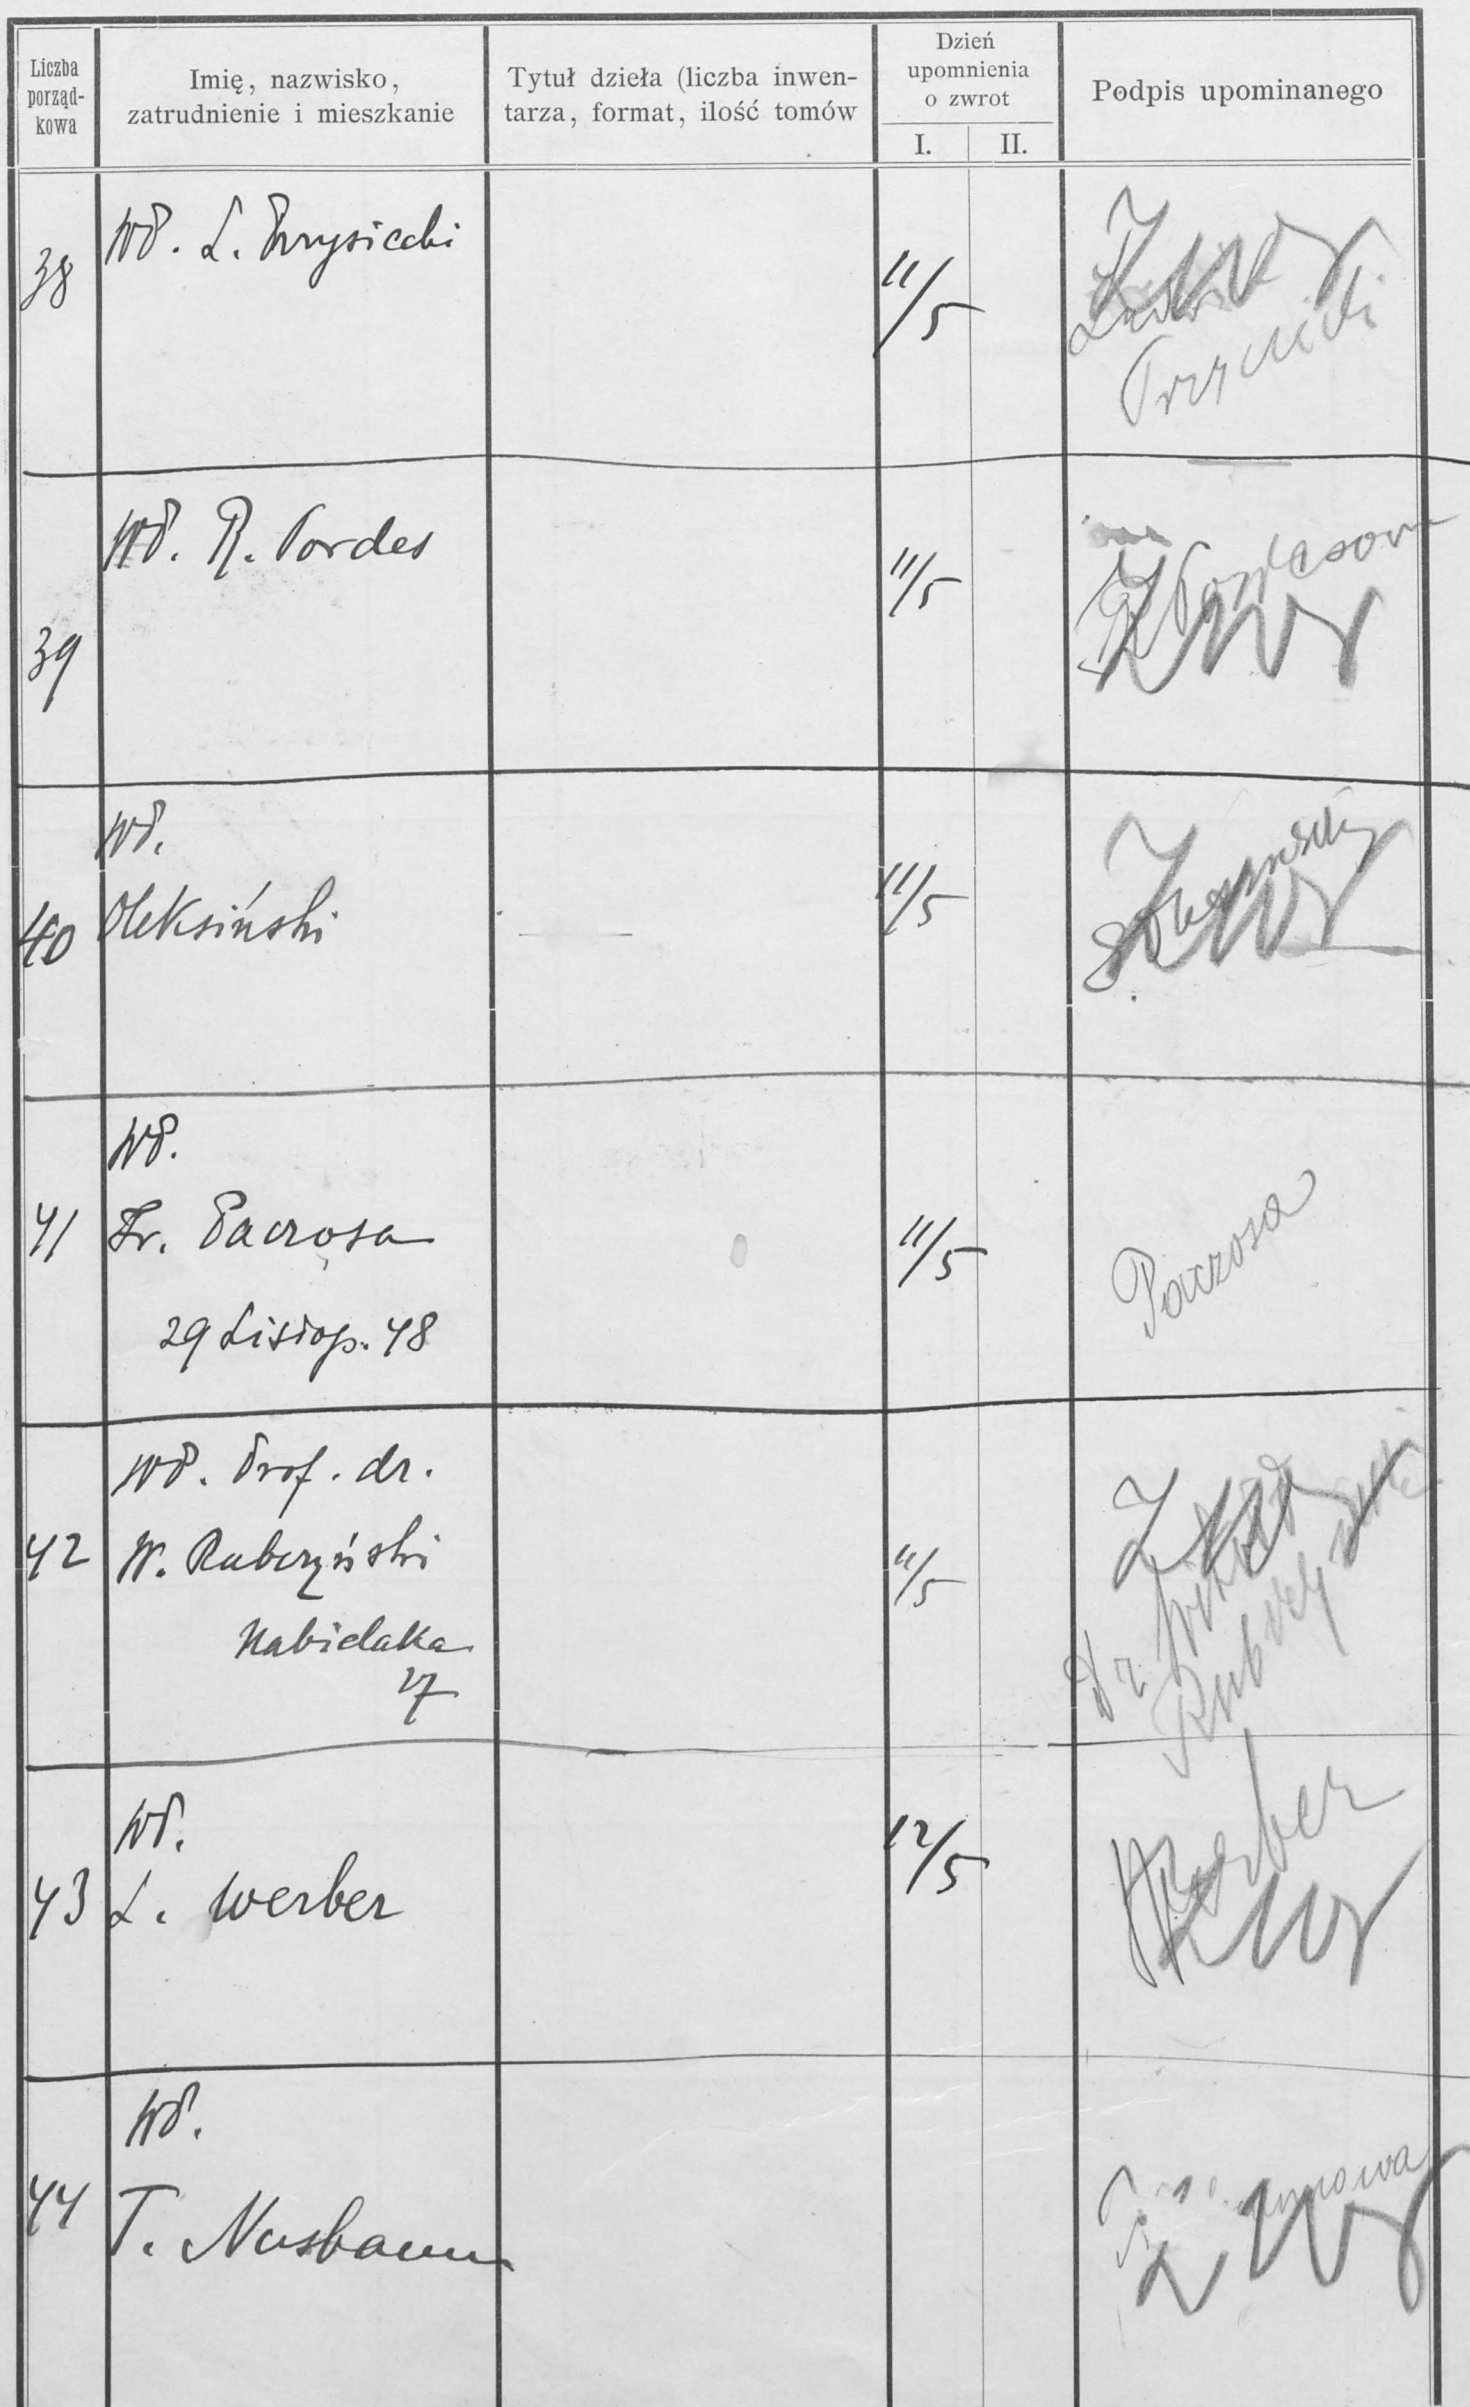 Liczba
porząd-
kowa
Imię, nazwisko,
zatrudnienie i mieszkanie
Tytuł dzieła (liczba inwen-
tarza, format, ilość tomów
Dzień
upomnienia
o zwrot
I. II.
Podpis upominanego
38
WP. L.
11/5
Zwr
39
WP. R. Pordes
11/5
Pordesowa
Zwr
40
WP.
Oleksiński
11/5
Zwr
41
WP.
Fr. Paczosa
29 Listop. 48
11/5
Paczosa
42
WP. Prof. dr.
W. Rubczyński
Nabielaka
17
11/5
Zwr
Dr Witold
Rubczyński
43
WP.
L. Werber
12/5
Werber
Zwr
44
WP.
T. Nusbaum
Zwr